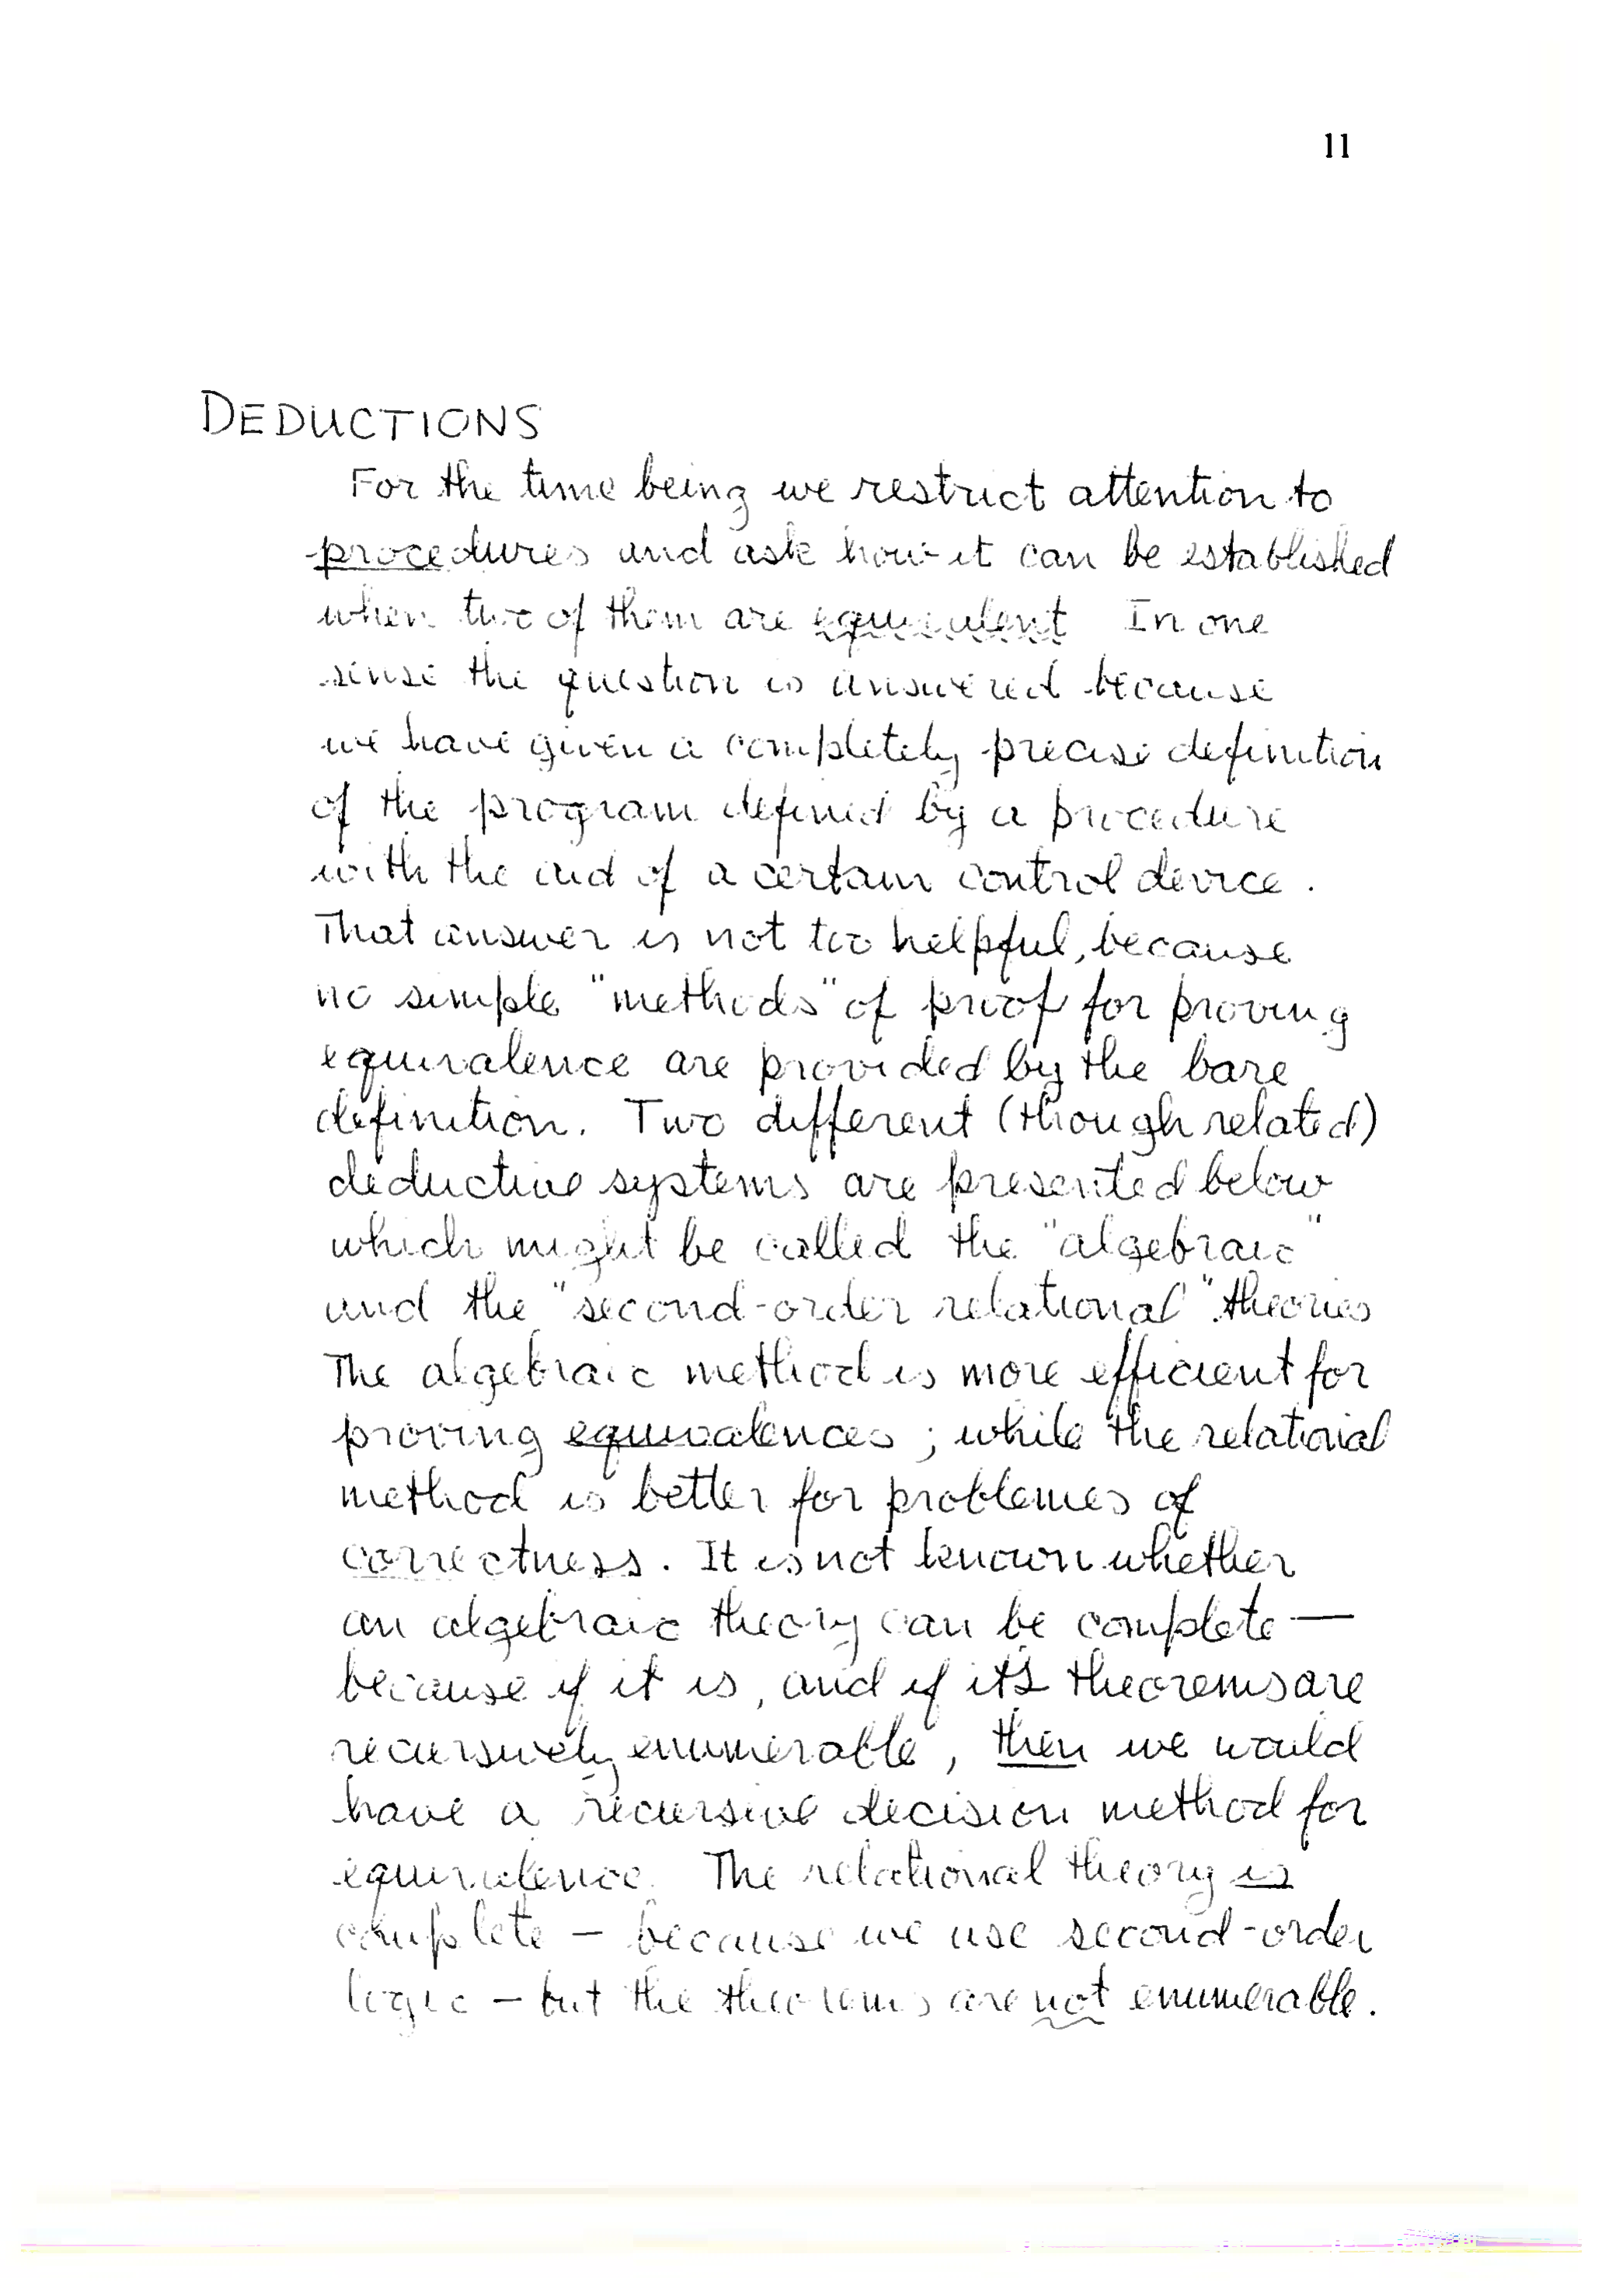 11
DEDUCTIONS
For the time being we restrict attention to
procedures and ask how it can be established
when two of them are equivalent In one
sense the question is answered because
we have given a completely precise definition
of the program defined by a procedure
with the aid of a certain control device.
That answer is not too helpful, because
no simple "methods" of proof for proving
equivalence are provided by the bare
definition. Two different (though related)
deductive systems are presented below
which might be called the "algebraic"
and the "second-order relational" theories
The algebraic method is more efficient for
proving equivalences; while the relational
method is better for problemes of
correctness. It is not known whether
an algebraic theory can be complete —
because if it is, and if it's theorems are
recursively enumerable, then we would
have a recursive decision method for
equivalence. The relational theory is
complete — because we use second-order
logic — but the theorems are not enumerable.